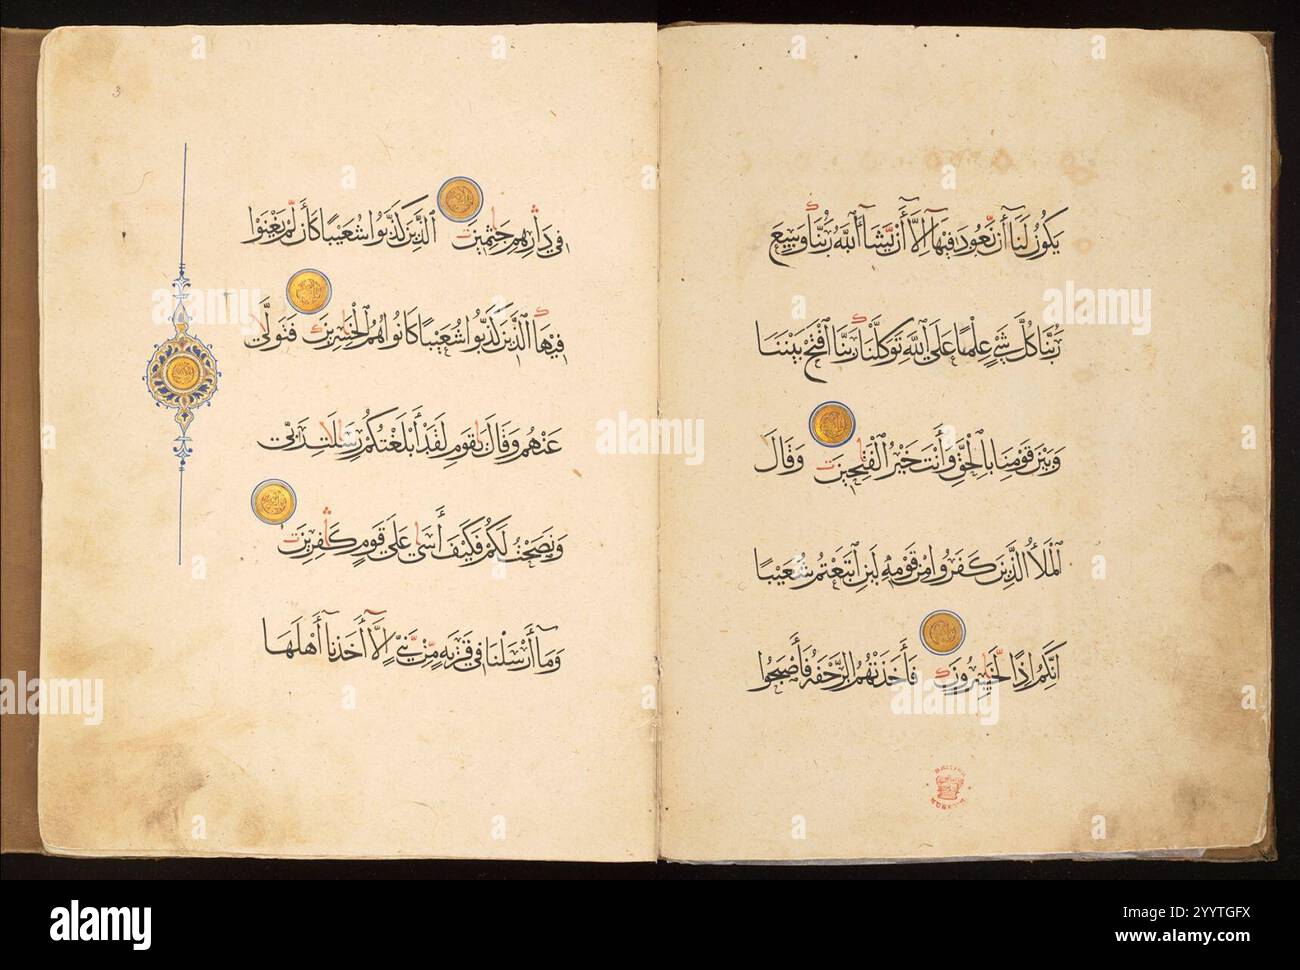 يَكُونُ لَنَا أَن نَّعُودَ فِيهَا إِلَّا أَن يَشَاءَ ٱللَّهُ رَبُّنَا وَسِعَ
رَبُّنَا كُلَّ شَيْءٍ عِلْمًا عَلَى ٱللَّهِ تَوَكَّلْنَا رَبَّنَا ٱفْتَحْ بَيْنَنَا
وَبَيْنَ قَوْمِنَا بِالْحَقِّ وَأَنتَ خَيْرُ ٱلْفَٰتِحِينَ وَقَالَ
ٱلْمَلَأُ ٱلَّذِينَ كَفَرُوا مِن قَوْمِهِ لَئِنِ ٱتَّبَعْتُمْ شُعَيْبًا
إِنَّكُمْ إِذًا لَّخَٰسِرُونَ فَأَخَذَتْهُمُ ٱلرَّجْفَةُ فَأَصْبَحُوا
فِي دَارِهِمْ جَٰثِمِينَ ٱلَّذِينَ كَذَّبُوا شُعَيْبًا كَأَن لَّمْ يَغْنَوْا
فِيهَا ٱلَّذِينَ كَذَّبُوا شُعَيْبًا كَانُوا هُمُ ٱلْخَٰسِرِينَ فَتَوَلَّىٰ
عَنْهُمْ وَقَالَ يَٰقَوْمِ لَقَدْ أَبْلَغْتُكُمْ رِسَٰلَٰتِ رَبِّي
وَنَصَحْتُ لَكُمْ فَكَيْفَ ءَاسَىٰ عَلَىٰ قَوْمٍ كَٰفِرِينَ
وَمَا أَرْسَلْنَا فِي قَرْيَةٍ مِّن نَّبِيٍّ إِلَّا أَخَذْنَا أَهْلَهَا
3
BRITISH MUSEUM
alamy
Image ID: 2YYTGFX
www.alamy.com